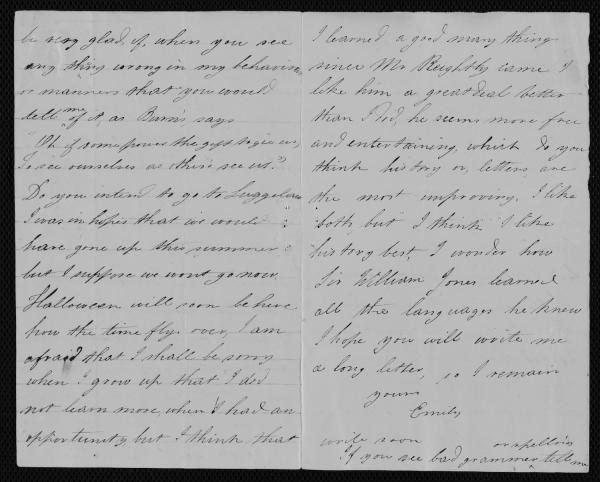 be very glad, if, when you see
any thing wrong in my behavior
or manners that you would
tell me of it, as Burn's says
"Oh if some power the gift to gie us,
To see ourselves as others see us."
Do you intend to go to
I was in hopes that we would
have gone up this summer
but I suppose we wont go now,
Halloween will soon be here
how the time flys over, I am
afraid that I shall be sorry
when I grow up that I did
not learn more, when I had an
opportunity but I think that
I learned a good many things
since Mr came I
like him a great deal better
than I did, he seems more free
and entertaining, which do you
think history or, letters, are
the most improving, I like
both, but I think I like
history best, I wonder how
Sir William Jones learned
all the languages he knew
I hope you will write me
a long letter, so I remain
yours
Emily
write soon
If you see bad grammer or spelling tell me